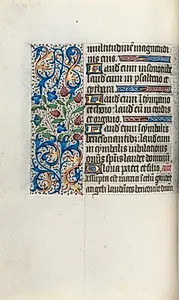 multitudinem magnitudi
nis eius. Laudate eum in sono tube
laudate eum in psalterio et
cythara. Laudate eum i tympano
et choro: laudate eum in cordis
et organo. Laudate eum i cymbalis
benesonantibus: laudate eum
in cymbalis iubilationis
omnis spūs laudet dominū
Gloria patri et filio
Assumpta est maria in celū gaudet
angeli laudātes benedicūt dnm